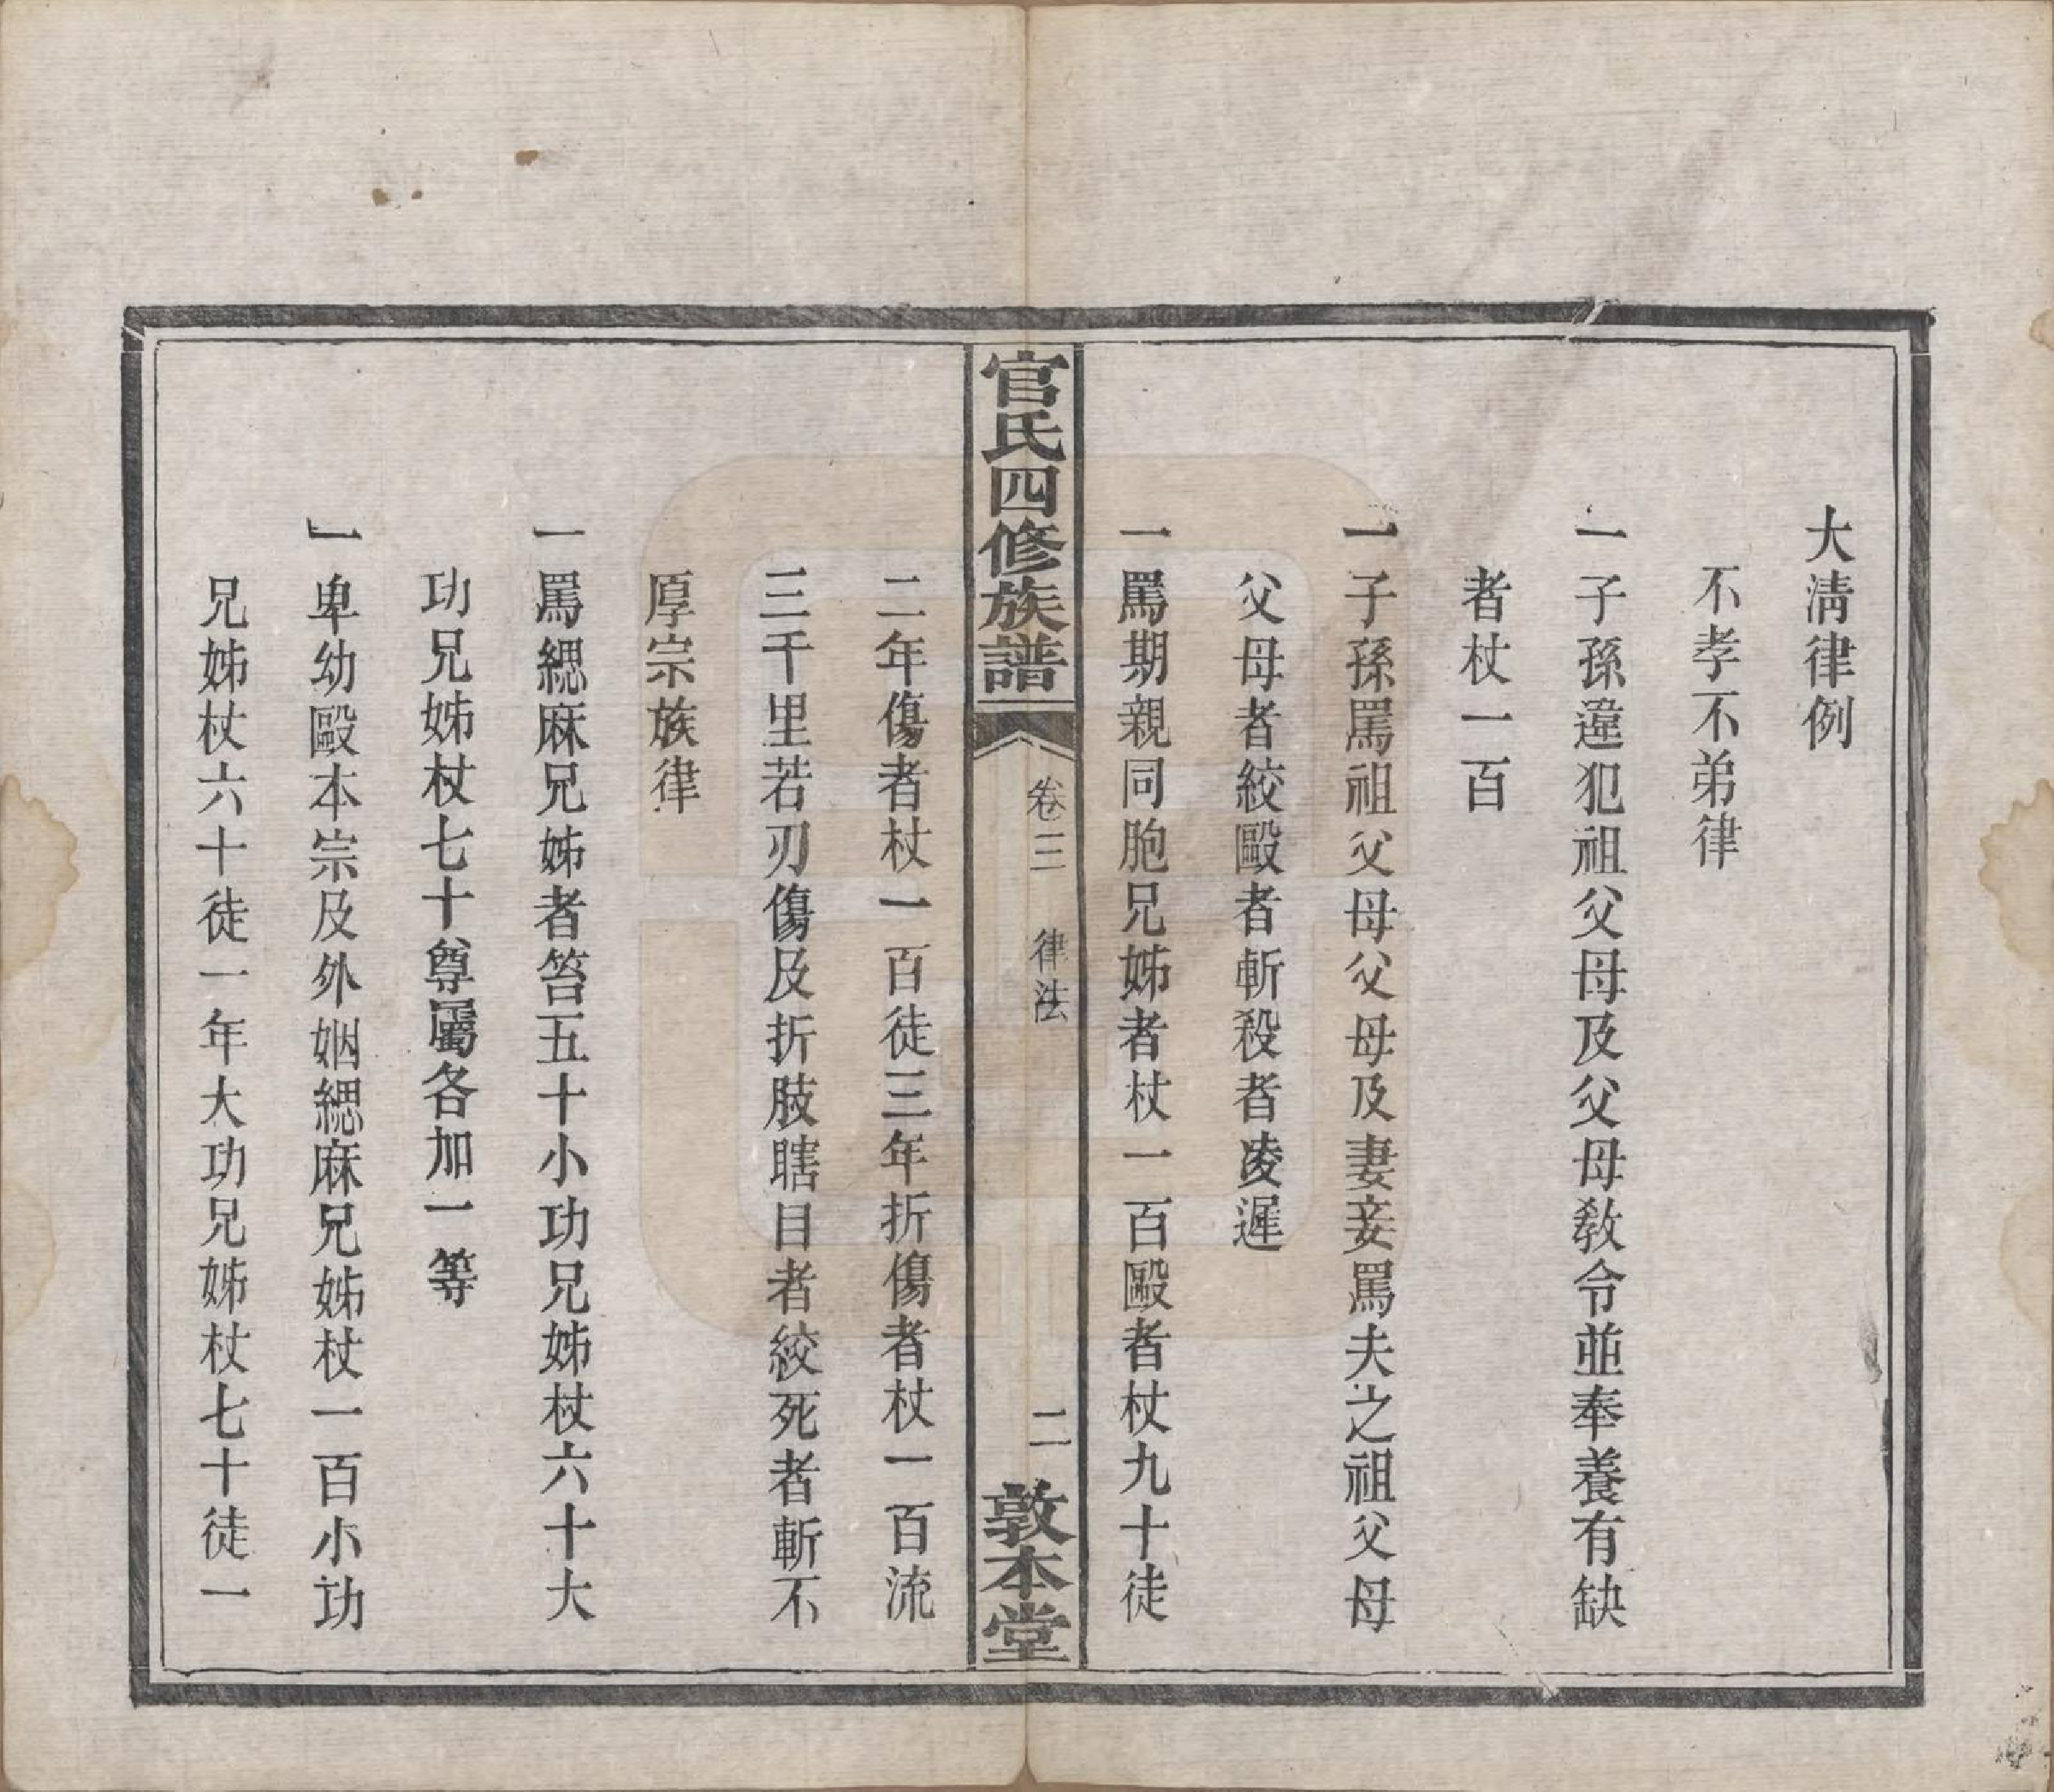 大淸律例
不孝不弟律
一子孫違犯祖父母及父母敎令並奉養有缺
者杖一百
一子孫罵祖父母父母及妻妾罵夫之祖父母
父母者絞毆者斬殺者凌遲
一罵期親同胞兄姊者杖一百毆者杖九十徒
官氏四修族譜
卷三 律法
二
敦本堂
二年傷者杖一百徒三年折傷者杖一百流
三千里若刃傷及折肢瞎目者絞死者斬不
厚宗族律
一罵緦麻兄姊者笞五十小功兄姊杖六十大
功兄姊杖七十尊屬各加一等
一卑幼毆本宗及外姻緦麻兄姊杖一百小功
兄姊杖六十徒一年大功兄姊杖七十徒一